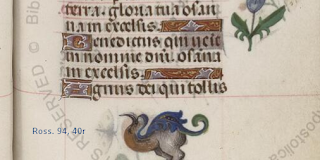 terra. gloria tua osan
na in excelsis.
Benedictus qui venit
in nomine dni. osana
in excelsis.
Agnus dei qui tollis
Ross. 94, 40r